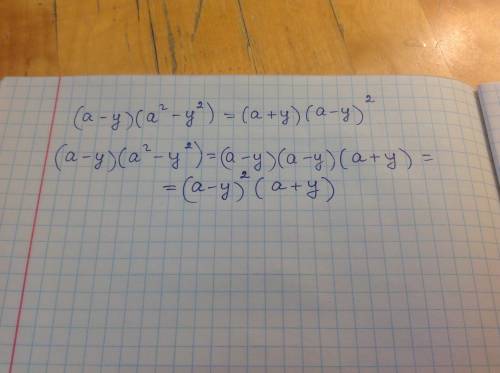 (a-y)(a²-y²) = (a+y)(a-y)²
(a-y)(a²-y²)=(a-y)(a-y)(a+y) =
=(a-y)²(a+y)